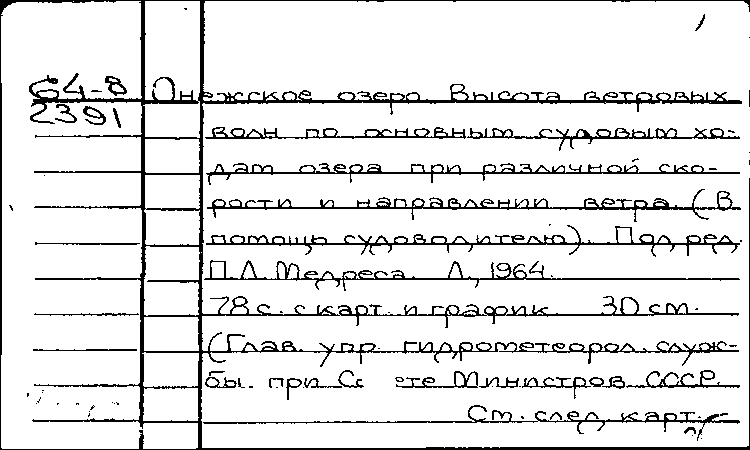 1
64-8 Онежское озеро. Высота ветровых
2391
волн по основным судовым хо-
дам озера при различной ско-
рости и направлении ветра. (В
помощь судоводителю). Под ред.
П.Л. Медреса. Л., 1964.
78 с. с карт. и график. 30 см.
(Глав. упр. гидрометеорол. служ-
бы. при Сс ете Министров СССР.
См. след. карт.